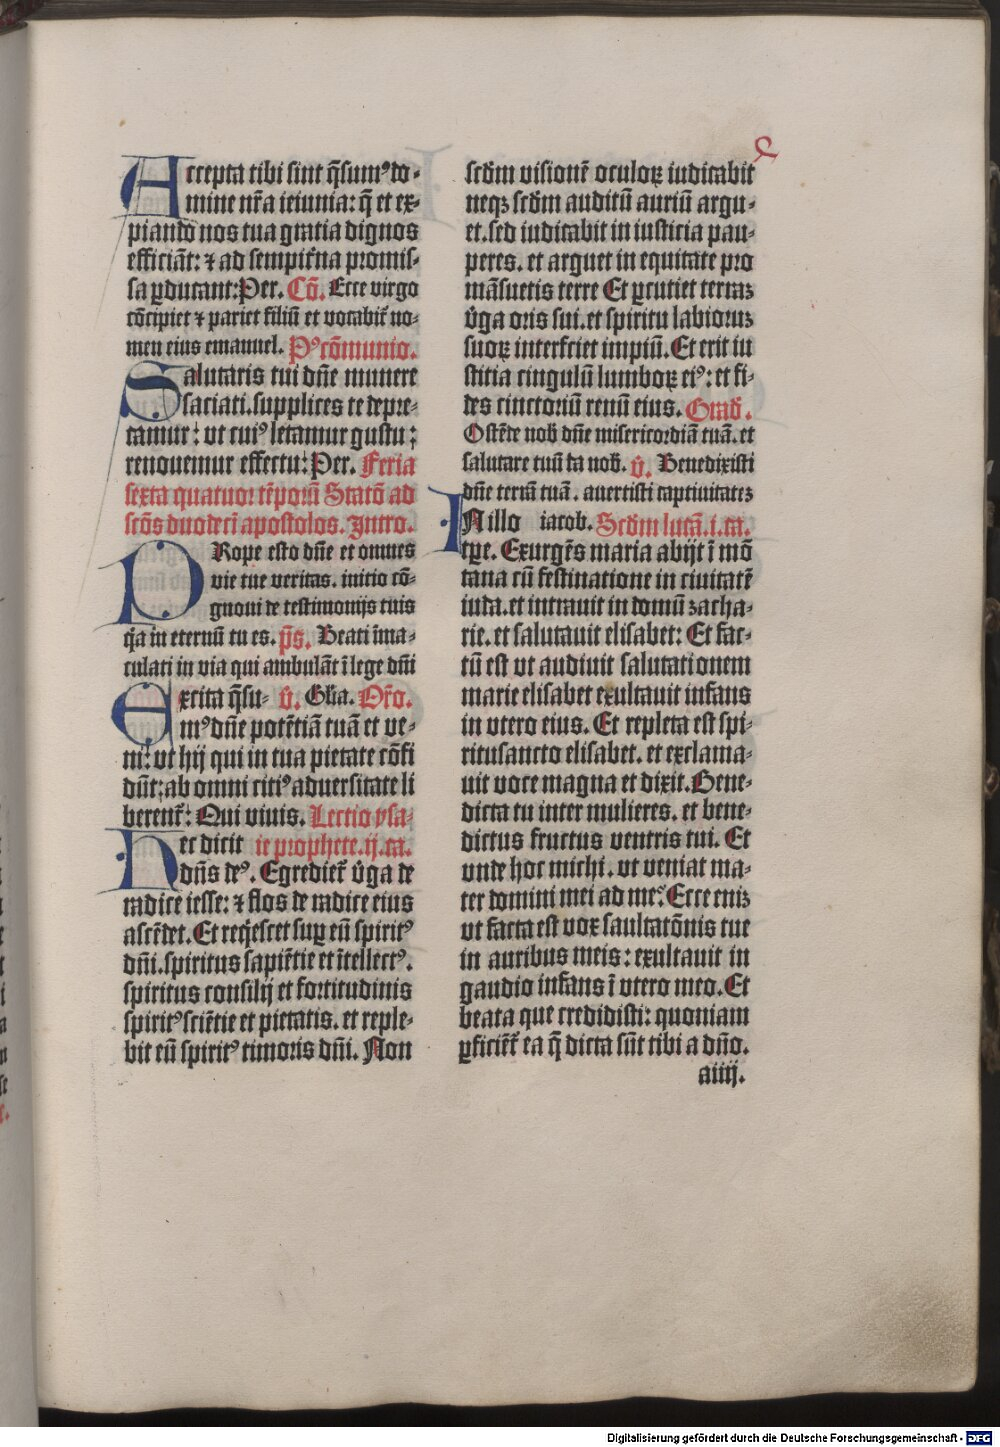 Accepta tibi sint q̄sumꝰ do-
mine nr̄a ieiunia: q̄ et ex-
piando nos tua gratia dignos
efficiāt: ⁊ ad sempit̄na promis-
sa ꝑducant: Per. Cō. Ecce virgo
cōcipiet ⁊ pariet filiū et vocabit̄ no-
men eius emanuel. Pꝰcōmunio.
Salutaris tui dn̄e munere
saciati. supplices te depre-
camur: vt cuiꝰ letamur gustu:
renouemur effectu: Per. Feria
sexta quatuor tēporū Statō ad
scōs duodecī apostolos. Intro.
PRope esto dn̄e et omnes
vie tue veritas. initio cō-
gnoui de testimonijs tuis
q̇a in eternū tu es. p̄s. Beati īma-
culati in via qui ambulāt ī lege dn̄i
Excita q̄su- v̄. Gl̄ia. Or̄o.
mꝰ dn̄e potētiā tuā et ve-
ni: vt hij qui in tua pietate cōfi
dūt: ab omni citiꝰ aduersitate li
berent̄: Qui viuis. Lectio ysa-
Hec dicit ie prophete. ij. ca.
dn̄s deꝰ. Egrediet̄ v̄ga de
radice iesse: ⁊ flos de radice eius
ascēdet. Et req̇escet suꝑ eū spiritꝰ
dn̄i. spiritus sapiētie et ītellectꝰ.
spiritus consilij et fortitudinis
spiritꝰ sciētie et pietatis. et reple-
bit eū spiritꝰ timoris dn̄i. Non
scd̄m visionē oculoꝝ iudicabit
neqꝫ scd̄m auditū auriū argu-
et. sed iudicabit in iusticia pau-
peres. et arguet in equitate pro
māsuetis terre Et ꝑcutiet terraꝫ
v̄ga oris sui. et spiritu labioruꝫ
suoꝝ interficiet impiū. Et erit iu
stitia cingulū lumboꝝ eiꝰ: et fi-
des cinctoriū renū eius. Grad̄.
Ostēde nob̄ dn̄e misericordiā tuā. et
salutare tuū da nob̄. v̄. Benedixisti
dn̄e terrā tuā. auertisti captiuitateꝫ
INillo iacob. Scd̄m lucā. i. ca.
tp̄e. Exurgēs maria abijt ī mō
tana cū festinatione in ciuitatē
iuda. et intrauit in domū zacha-
rie. et salutauit elisabet: Et fac-
tū est vt audiuit salutationem
marie elisabet exultauit infans
in vtero eius. Et repleta est spi-
ritusancto elisabet. et exclama-
uit voce magna et dixit. Bene-
dicta tu inter mulieres. et bene-
dictus fructus ventris tui. Et
vnde hoc michi. vt veniat ma-
ter domini mei ad me? Ecce eniꝫ
vt facta est vox saultatōnis tue
in auribus meis: exultauit in
gaudio infans ī vtero meo. Et
beata que credidisti: quoniam
ꝑficiēt̄ ea q̄ dicta sūt tibi a dn̄o.
aiiij.
Digitalisierung gefördert durch die Deutsche Forschungsgemeinschaft - DFG